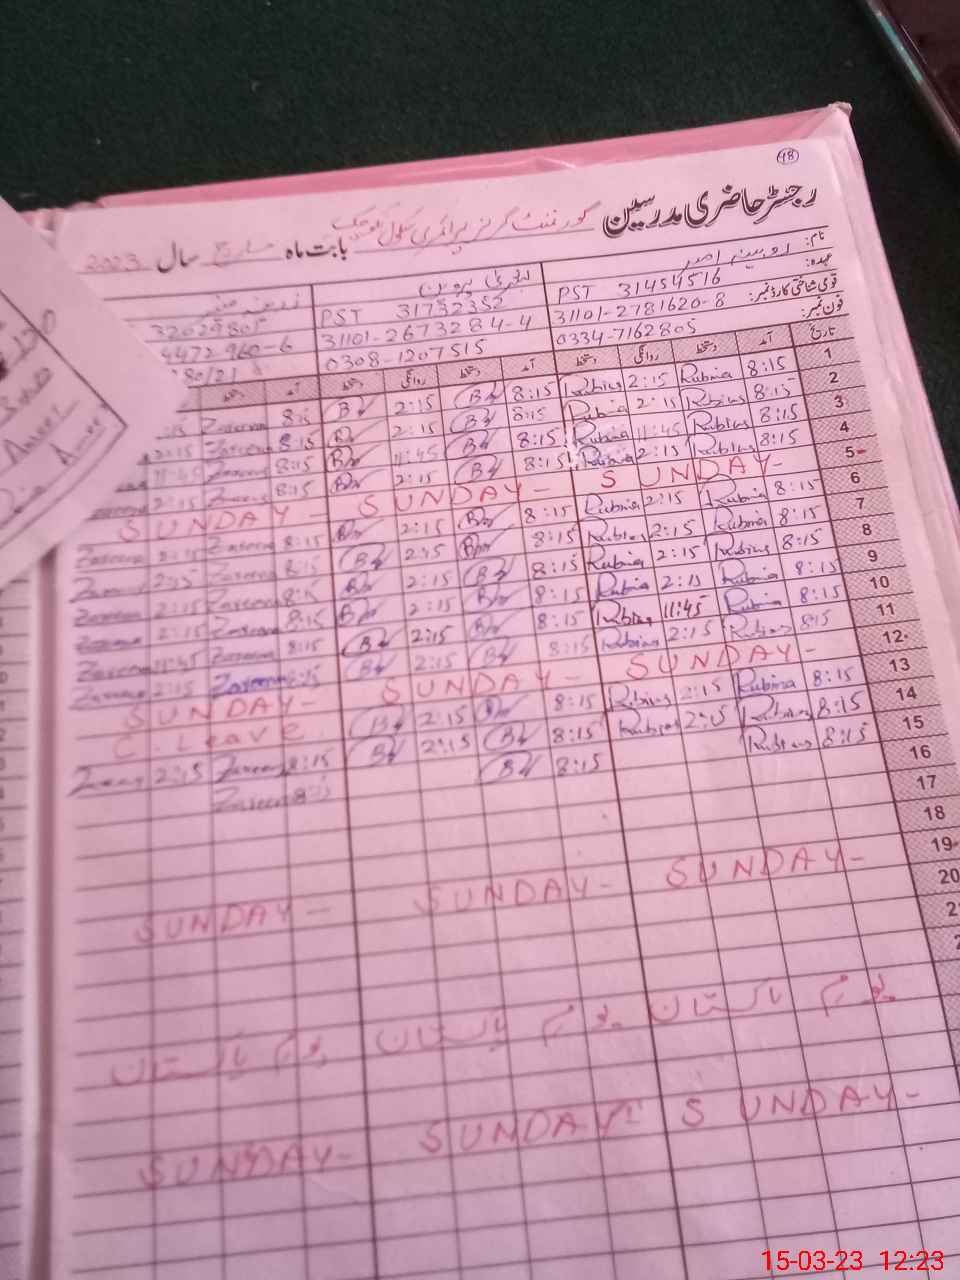 48
رجسٹر حاضری مدرسین گورنمنٹ گرلز پرائمری سکول بابت ماہ مارچ سال 2023
نام: روبینہ بشریٰ پروین
عہدہ: PST 31454516 PST 31732352 32029805
قومی شناختی کارڈ نمبر: 31101-2781620-8 31101-2673284-4 4472960-6
فون نمبر: 0334-7162805 0308-1207515
تاریخ آمد دستخط روانگی دستخط آمد دستخط روانگی دستخط آمد دستخط
1 8:15 Rubina 2:15 Rubina 8:15 2:15 8:15 Zareena
2 8:15 Rubina 2:15 Rubina 8:15 2:15 8:15 Zareena 2:15
3 8:15 Rubina 11:45 Rubina 8:15 11:45 8:15 Zareena 11:45
4 8:15 Rubina 2:15 Rubina 8:15 2:15 8:15 Zareena 2:15
5 SUNDAY SUNDAY SUNDAY
6 8:15 Rubina 2:15 Rubina 8:15 2:15 8:15 Zareena 2:15 Zareena
7 8:15 Rubina 2:15 Rubina 8:15 2:15 8:15 Zareena 2:15 Zareena
8 8:15 Rubina 2:15 Rubina 8:15 2:15 8:15 Zareena 2:15 Zareena
9 8:15 Rubina 2:15 Rubina 8:15 2:15 8:15 Zareena 2:15 Zareena
10 8:15 Rubina 11:45 Rubina 8:15 2:15 8:15 Zareena 11:45 Zareena
11 8:15 Rubina 2:15 Rubina 8:15 2:15 8:15 Zareena 2:15 Zareena
12 SUNDAY SUNDAY SUNDAY
13 8:15 Rubina 2:15 Rubina 8:15 2:15 C. Leave
14 8:15 Rubina 2:15 Rubina 8:15 2:15 8:15 Zareena 2:15 Zareena
15 8:15 Rubina 8:15 8:15 Zareena
16
17
18
19 SUNDAY SUNDAY SUNDAY
20
یوم پاکستان یوم پاکستان یوم پاکستان
SUNDAY SUNDAY SUNDAY
15-03-23 12:23